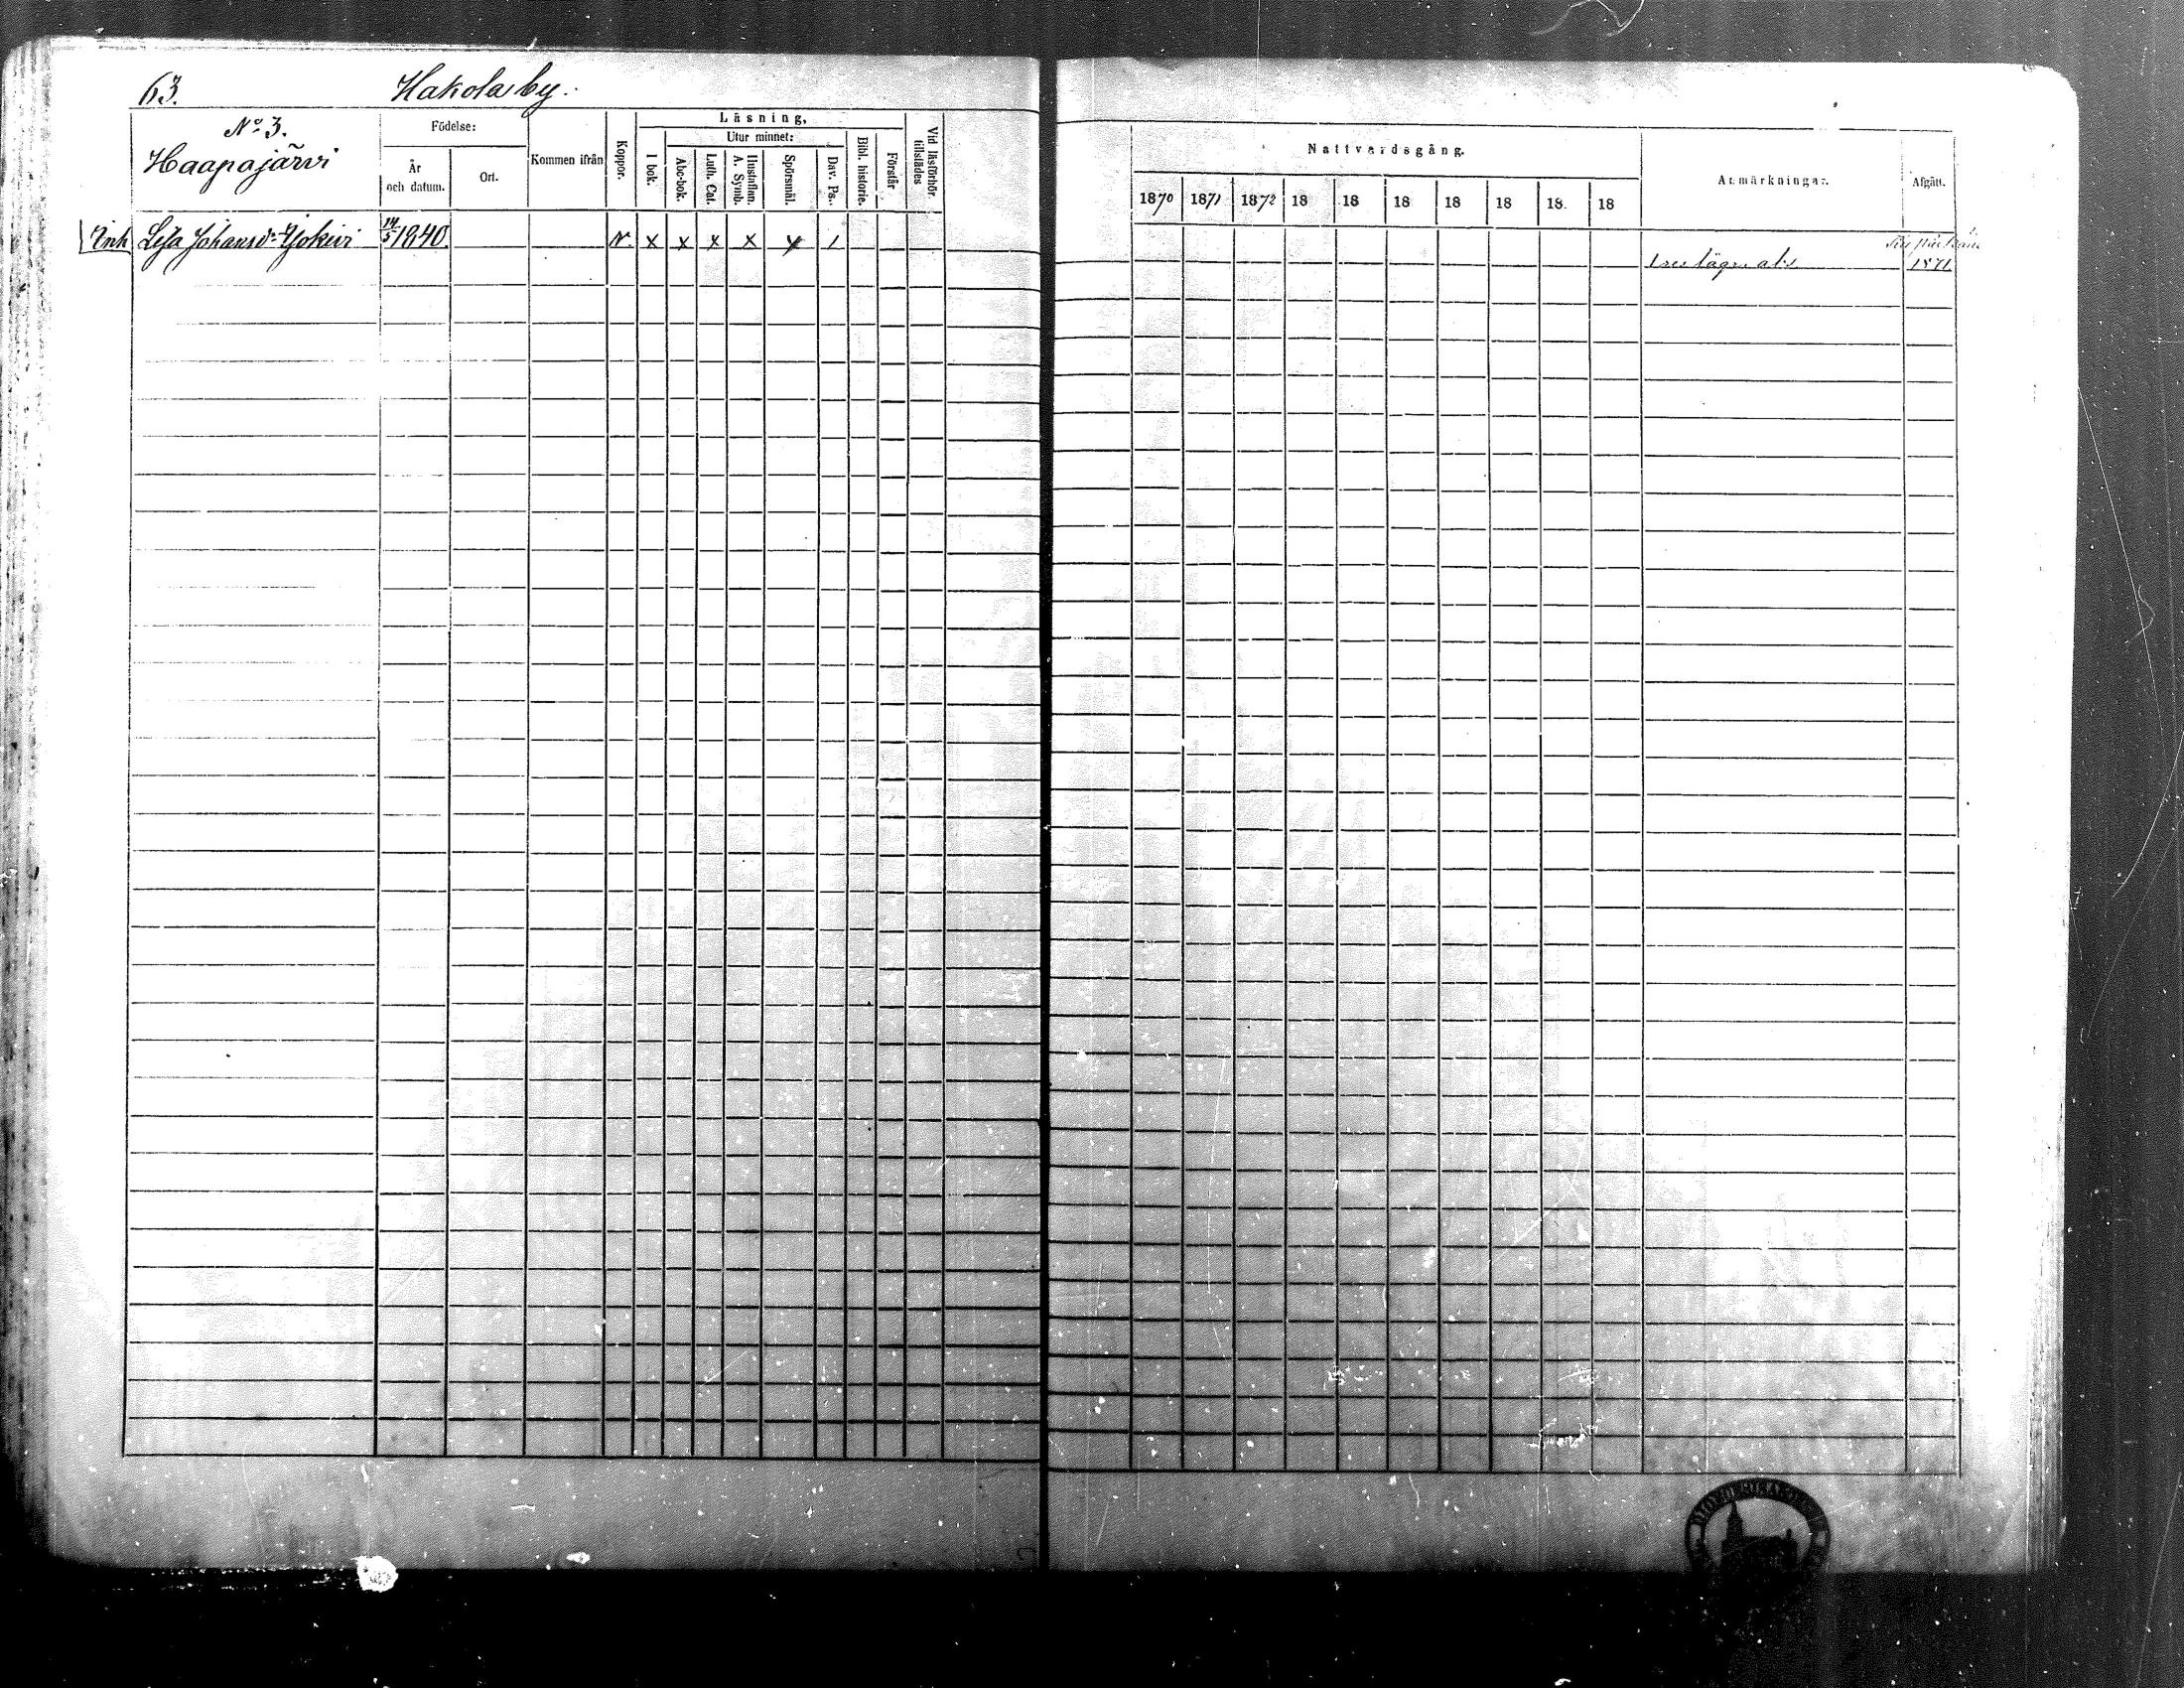 63.
Hakola by.
No 3.
Haapajärvi
Födelse:
År
och datum.
Ort.
Kommen ifrån
Koppor.
Läsning,
I bok.
Utur minnet:
Abc-bok.
Luth. Cat.
Hustaflan.
A. Symb.
Spörsmål.
Dav. Ps.
Bibl. historie.
Förstår
Vid läsförhör
tillstädes
Nattvardsgång.
1870 1871 1872 18 18 18 18 18 18. 18
Anmärkningar.
Afgått.
Inh Lisa Johansdr 14/5 1840 x x x x x
1 res lägr. abs.
1871